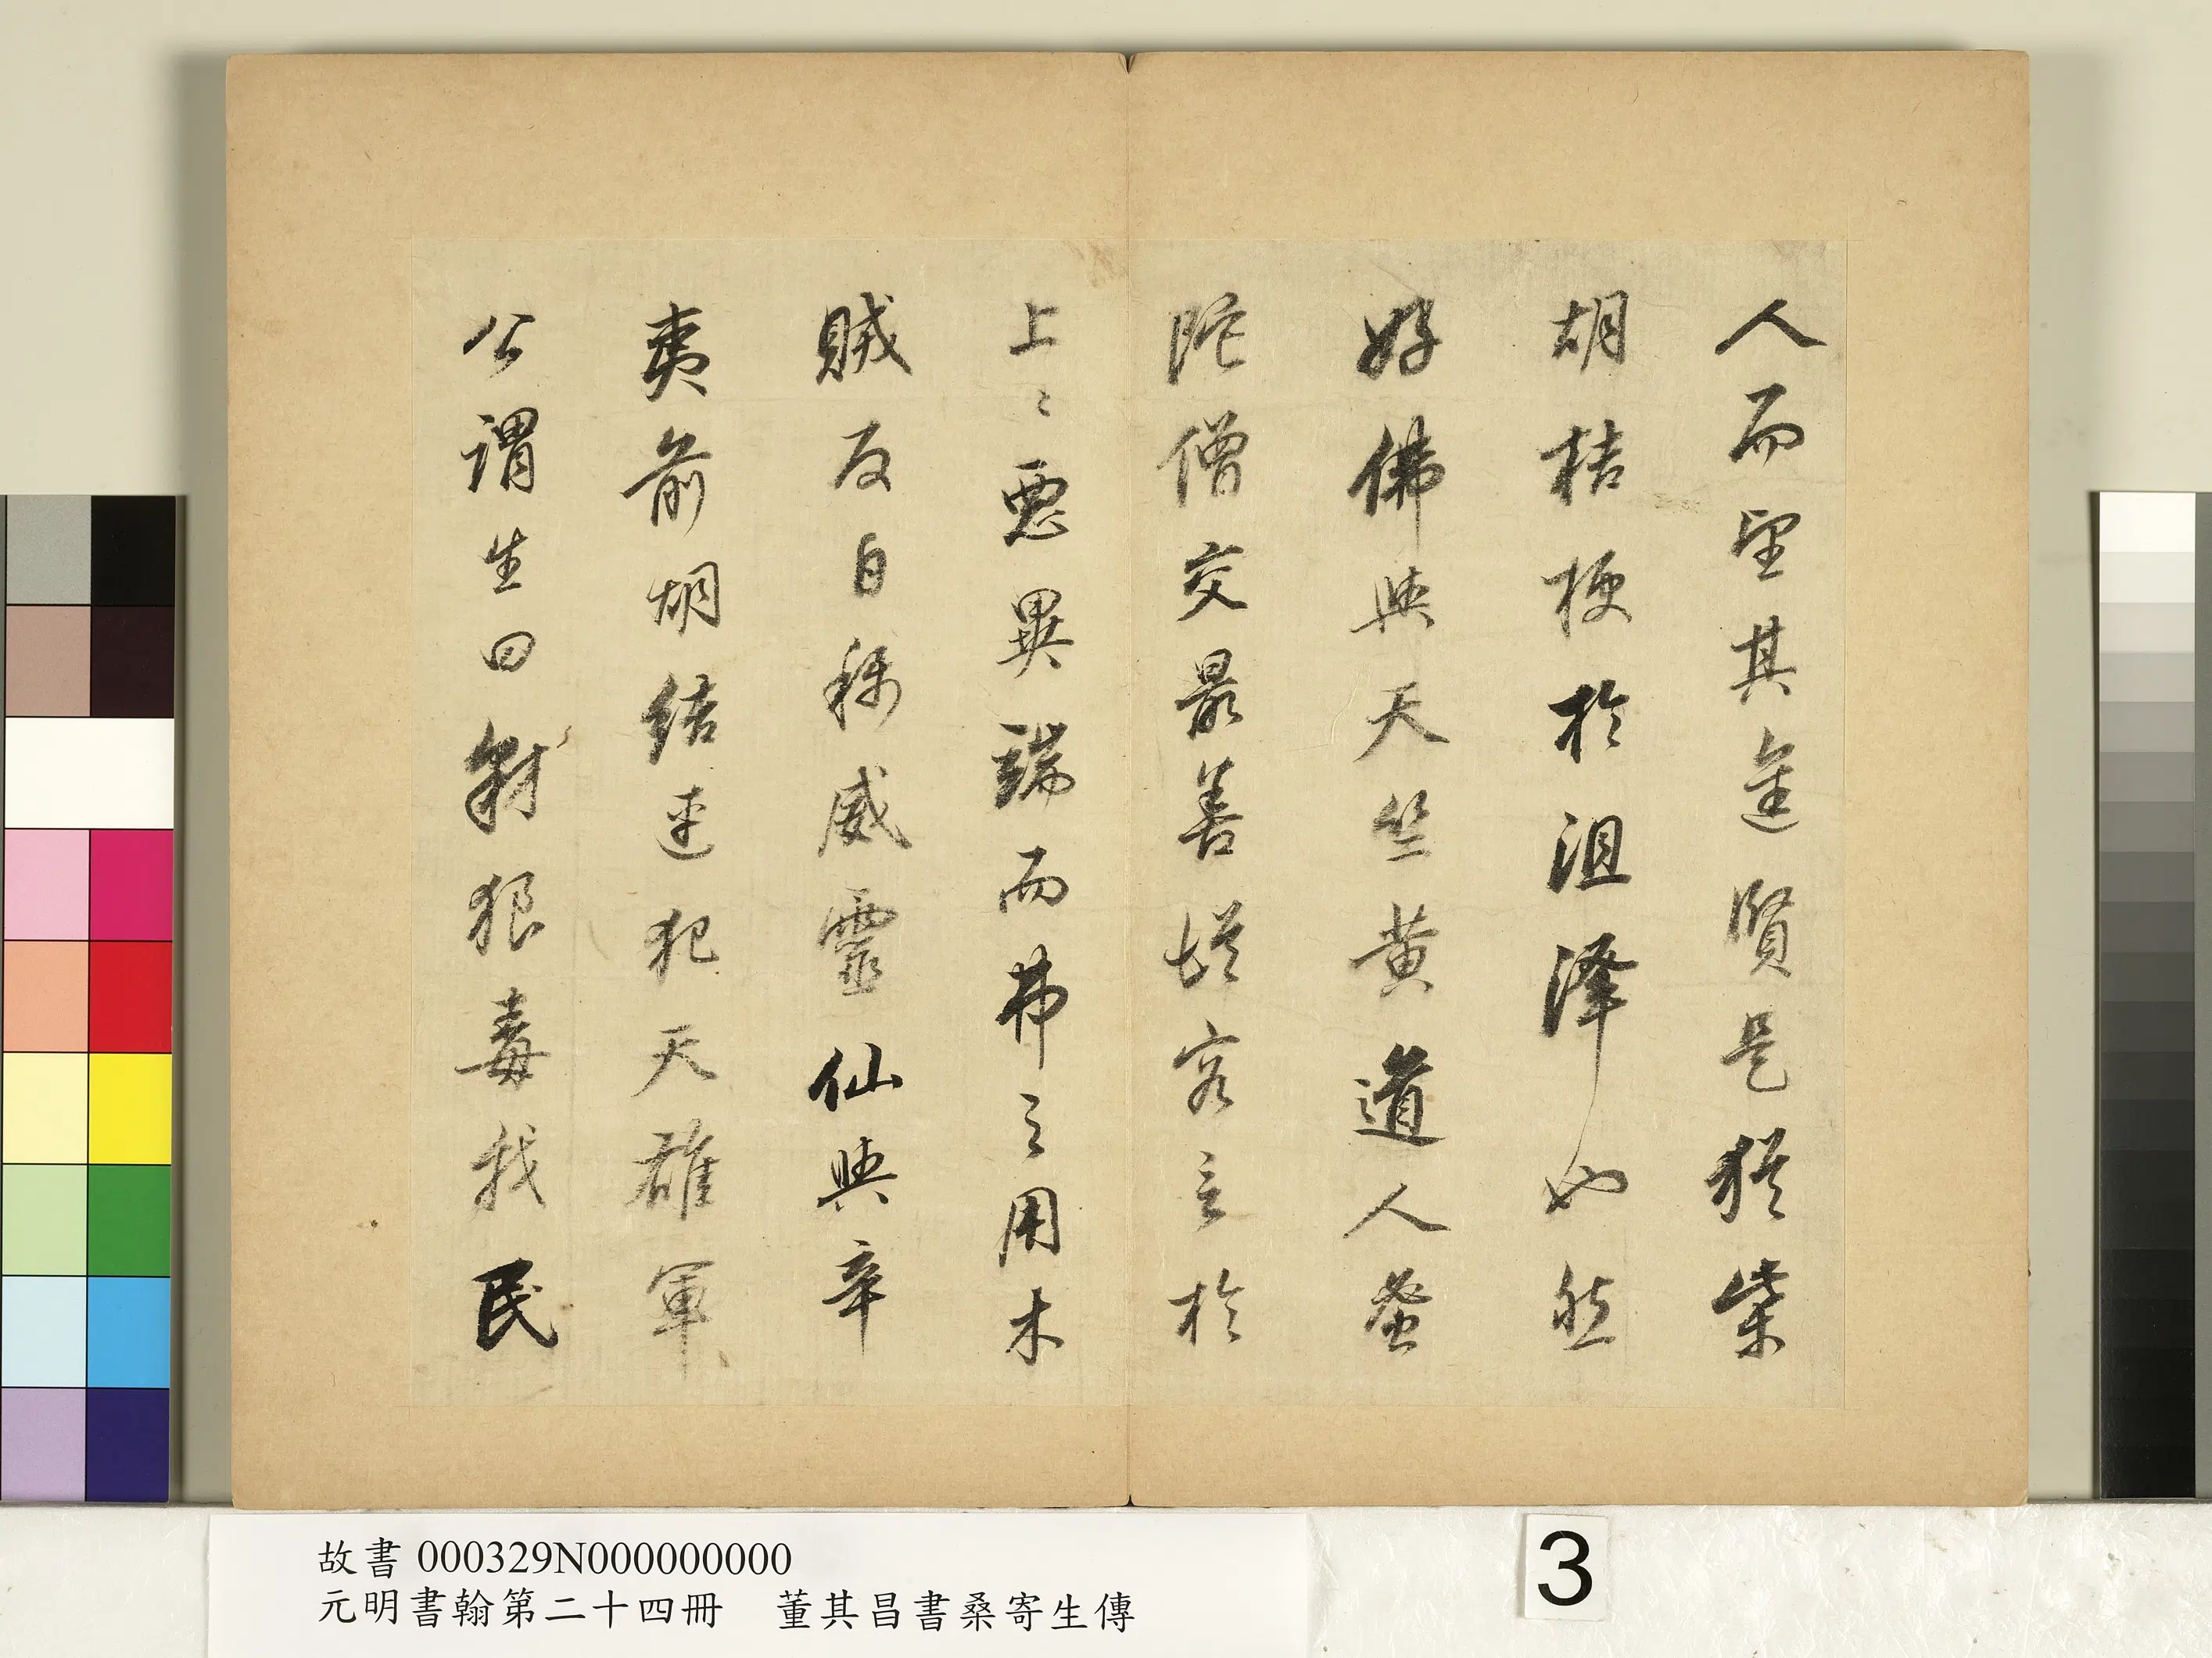 人而望其進賢是猶柴
胡桔梗於沮澤也然
好佛與天竺黃道人蚕
陀僧交最善從容言於
上上惡異端而弗之用木
賊反自称威靈仙與辛
夷前胡結連犯天雄軍
公謂生曰豺狠毒我民
故書 000329N000000000
元明書翰第二十四冊　董其昌書桑寄生傳
3